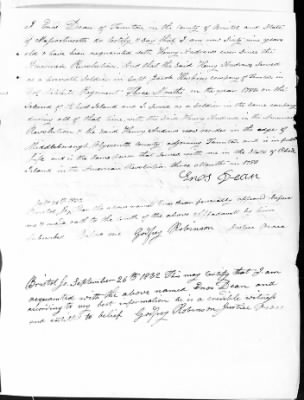 I Enos Dean of Taunton in the County of Bristol and State
of Massachusetts do testify & say that I am now Sixty nine years
old & have been acquainted with Henry Andrews ever Since the
American Revolution. And that the said Henry Andrews served
as a Soldier in Capt Jacob Haskins company of in
Col Regiment Three Months in the year 1780 on the
Island of Rhode Island and I Served as a soldier in the same company
during all of that time with the said Henry Andrews in the American
Revolution & the said Henry Andrews now resides in the edge of
Middleborough Plymouth County adjoining Taunton and is in
Life and is the same man that served with me in the State of Rhode
Island in the American Revolution three Months in 1780
Enos Dean
Sept 26th 1832
Bristol Ss, then the above named Enos Dean personally appeared before
me & made oath to the truth of the above affidavit by him
Subscribed before me Godfrey Robinson Justice Peace
Bristol Ss September 26th 1832 This may certify that I am
acquainted with the above named Enos Dean and
according to my best information he is a credible witness
and entitled to belief Godfrey Robinson Justice Peace